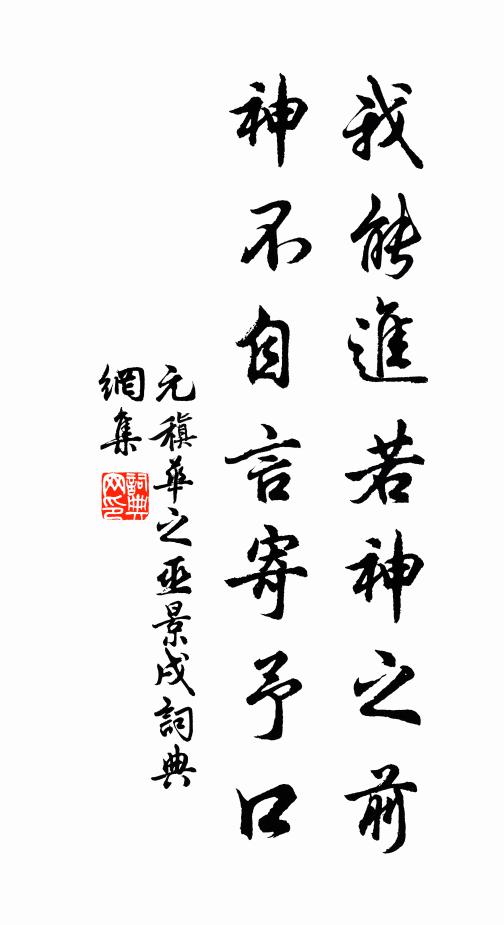 我能進若神之前
神不自言寄予口
元稹華之巫景戌詞典
網集
詞典
网印